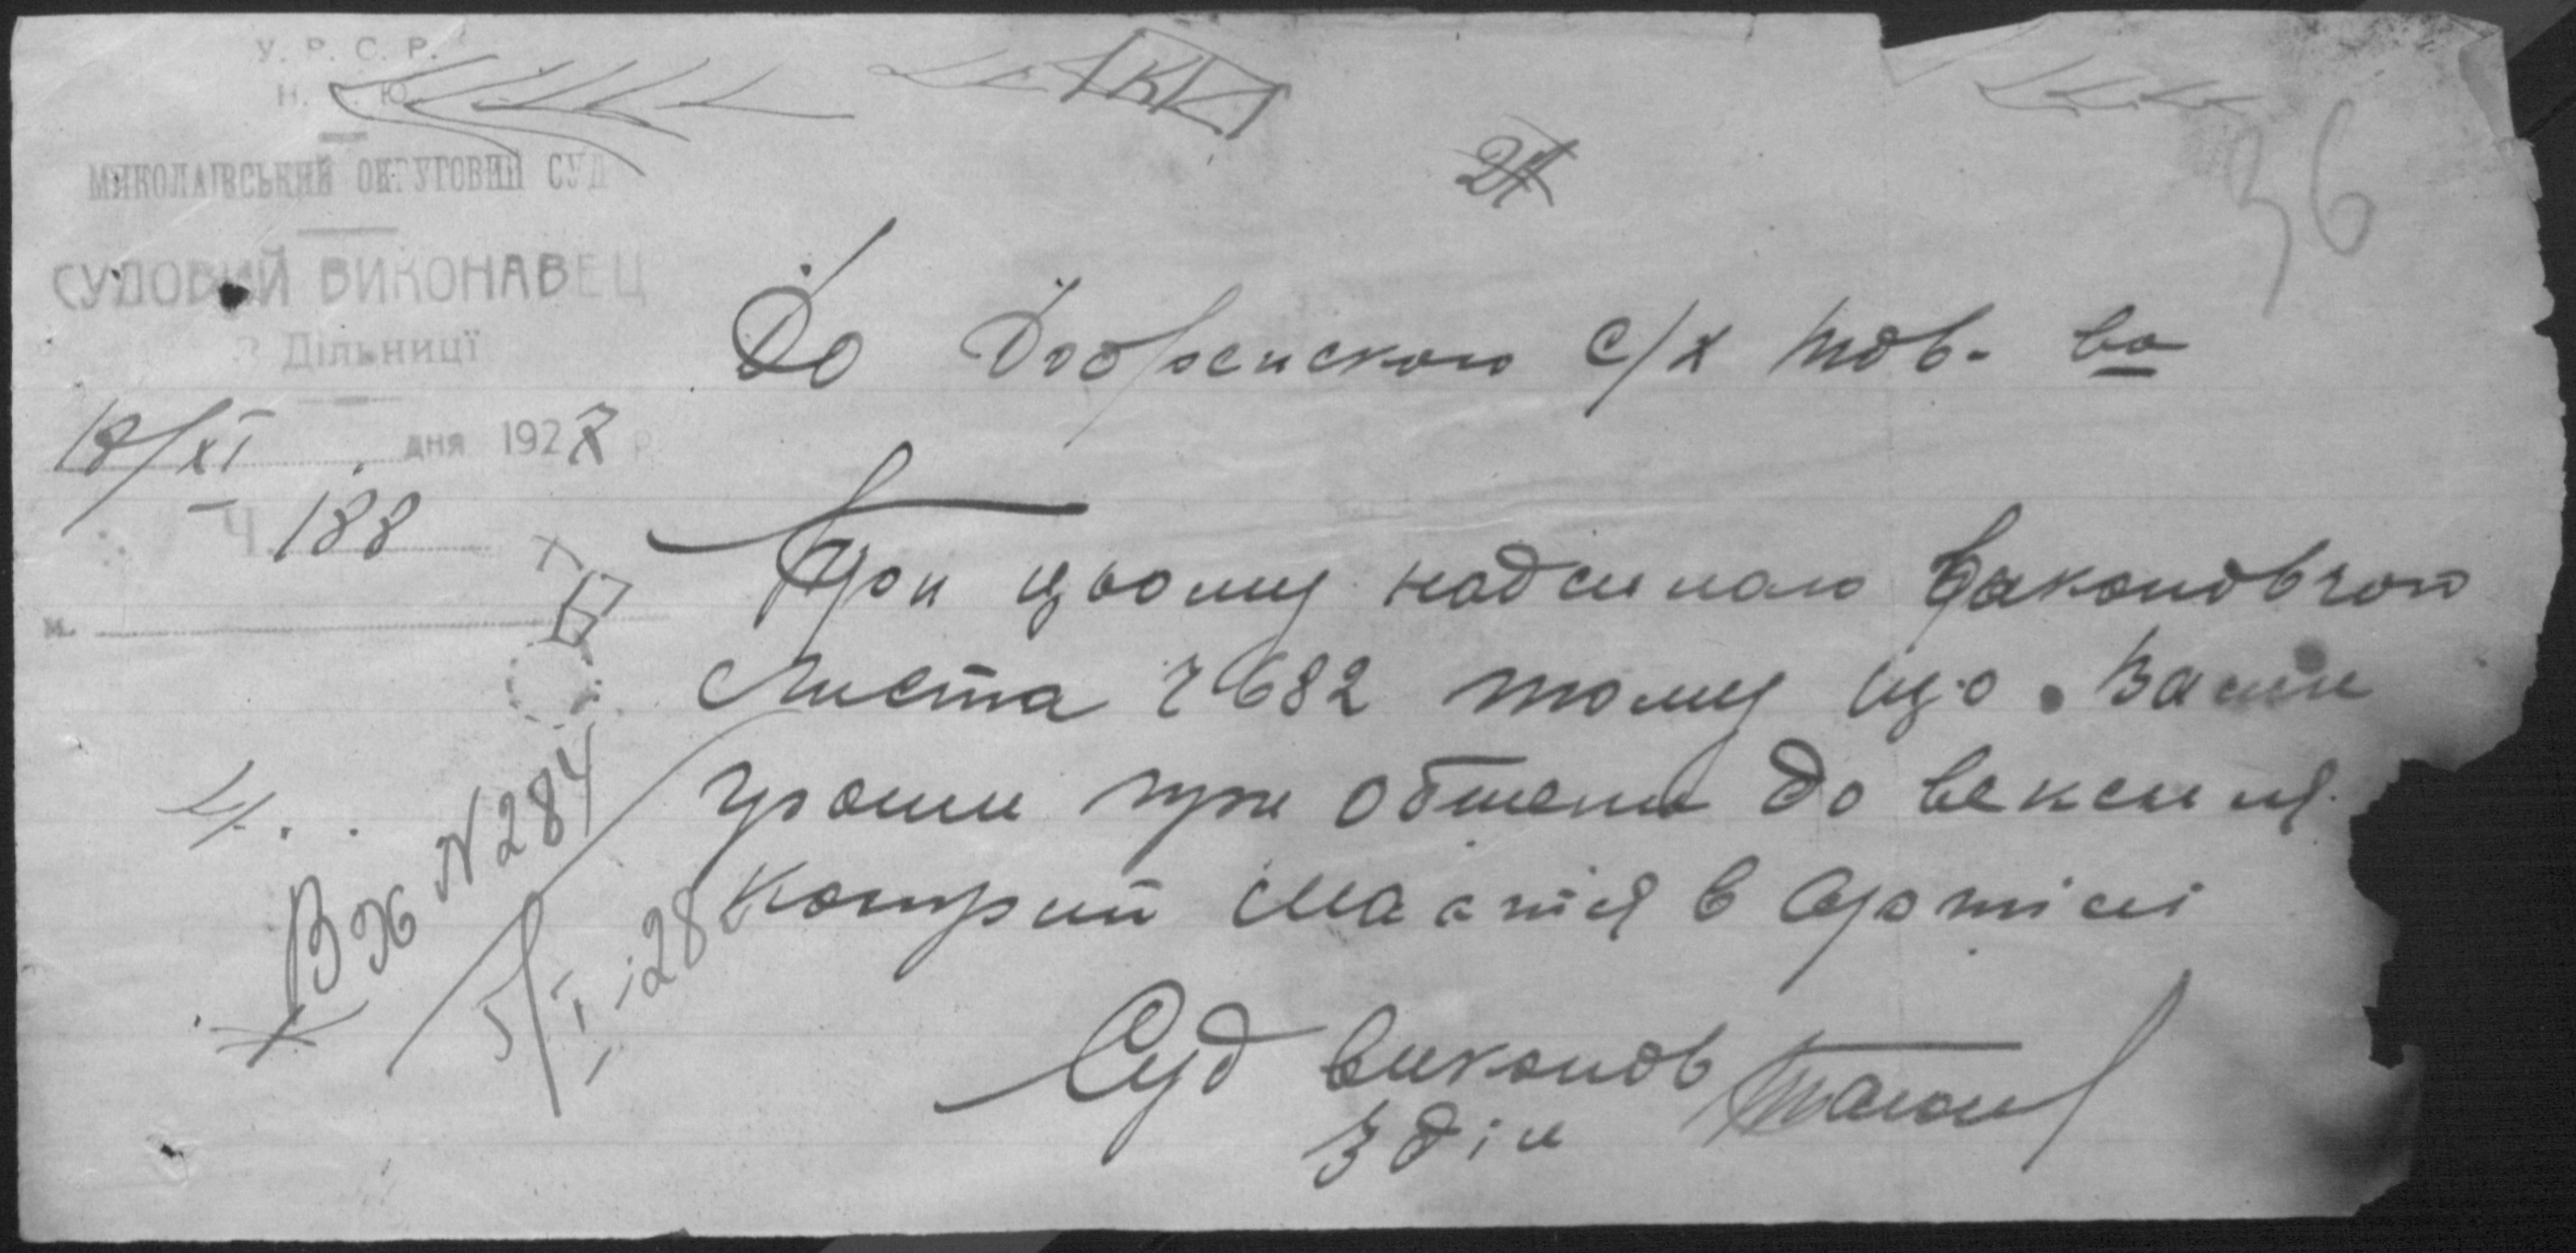 У. Р. С. Р.
Н. Ю.
МИКОЛАІВСЬКИЙ ОКРУГОВИЙ СУД
СУДОВИЙ ВИКОНАВЕЦ
3 Дільниці
18/XI дня 1927 р.
Ч 188
м.
24
36
До Добренского с/х тов-ва
При цьому надсилаю Виконовчого
листа 2682 тому що Ваши
гроши при
до векселя
котрий мается в Артілі
Суд виконов
3 діл
Вж N 284
5/I-28